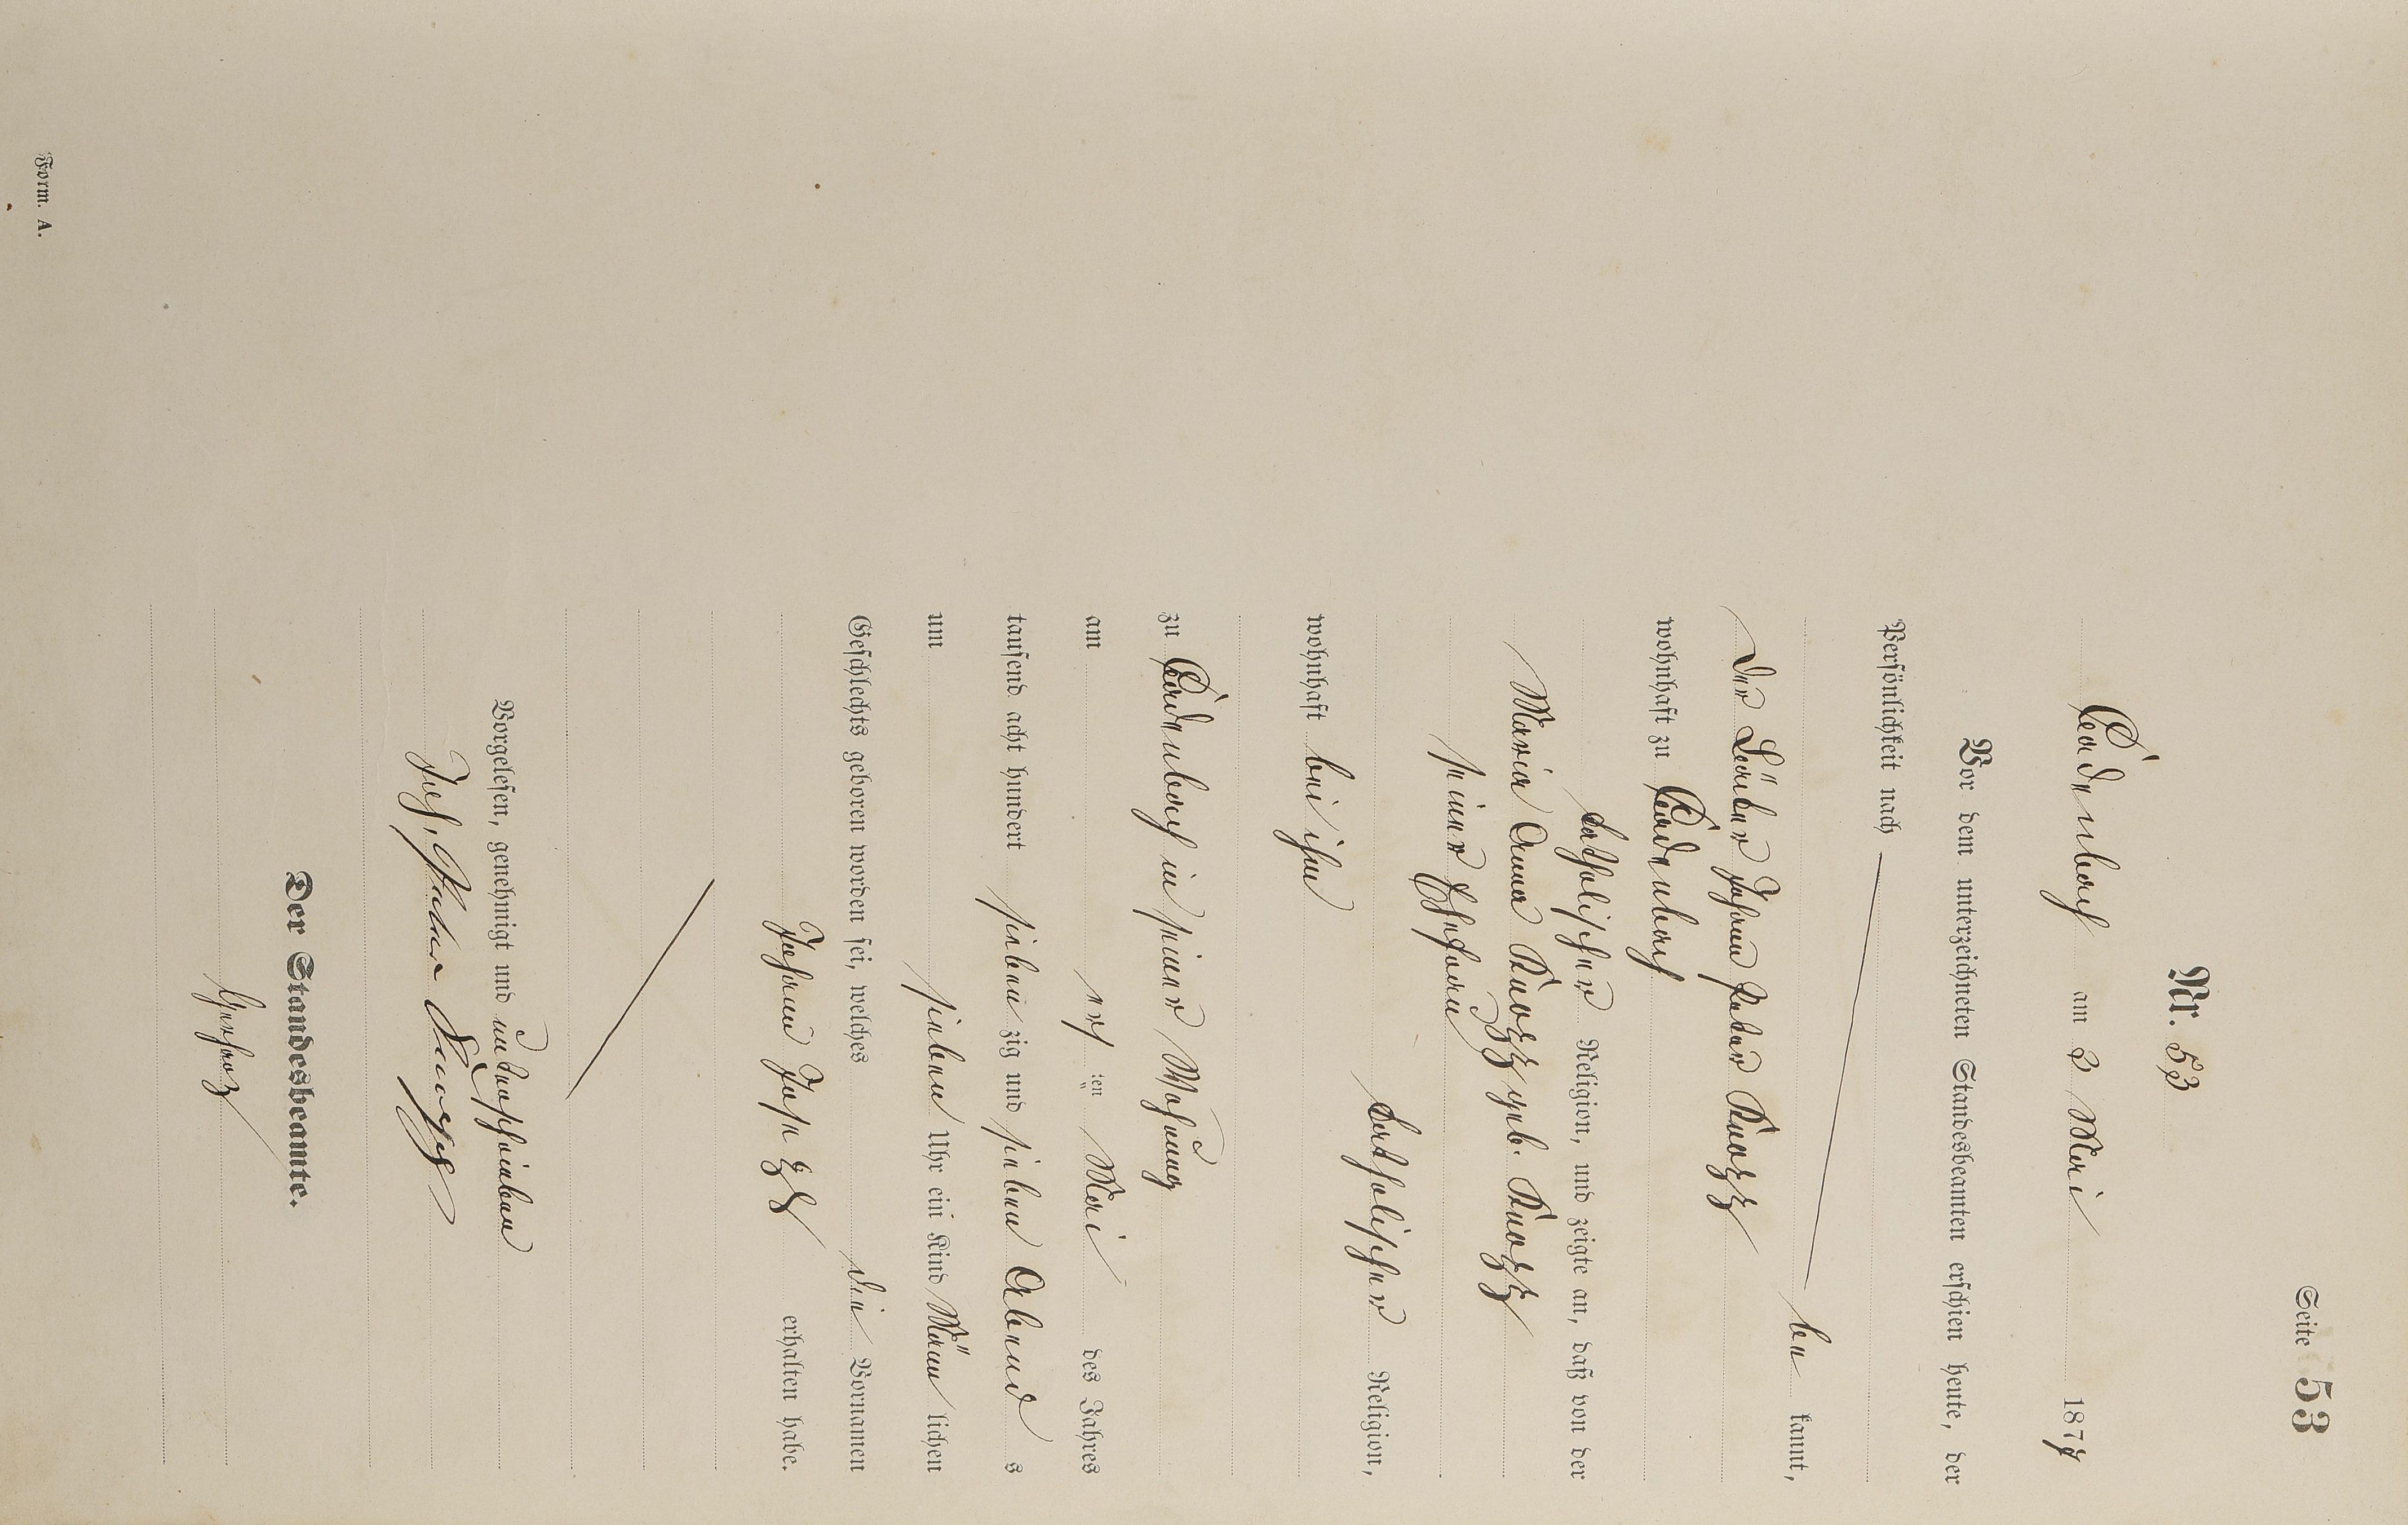 Seite 53
Nr. 53
Cadenbach am 2 Mai 1877
Vor dem unterzeichneten Standesbeamten erschien heute, der
Persönlichkeit nach
be kannt,
der Johann Peter Knopp
wohnhaft zu Cadenbach
katholischer Religion, und zeigte an, daß von der
Maria Anna Knopp geb. Knopp
seiner Ehefrau
katholischer Religion,
wohnhaft bei ihm
zu Cadenbach in seiner Wohnung
am ersten Mai des Jahres
tausend acht hundert sieben zig und sieben Abends
um sieben Uhr ein Kind Männlichen
Geschlechts geboren worden sei, welches die Vornamen
Johann Josef erhalten habe.
Vorgelesen, genehmigt und unterschrieben
Joh. Peter Knopp
Der Standesbeamte.
Gerharz
Form. A.